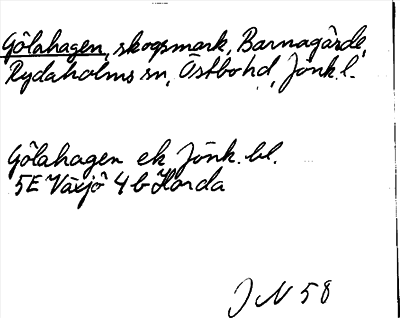 Gölahagen, skogsmark, Barnagårde,
Rydaholms sn, Östbo hd, Jönk. l.
Gölahagen ek Jönk. bl.
5E Växjö 4b Horda
J N 58